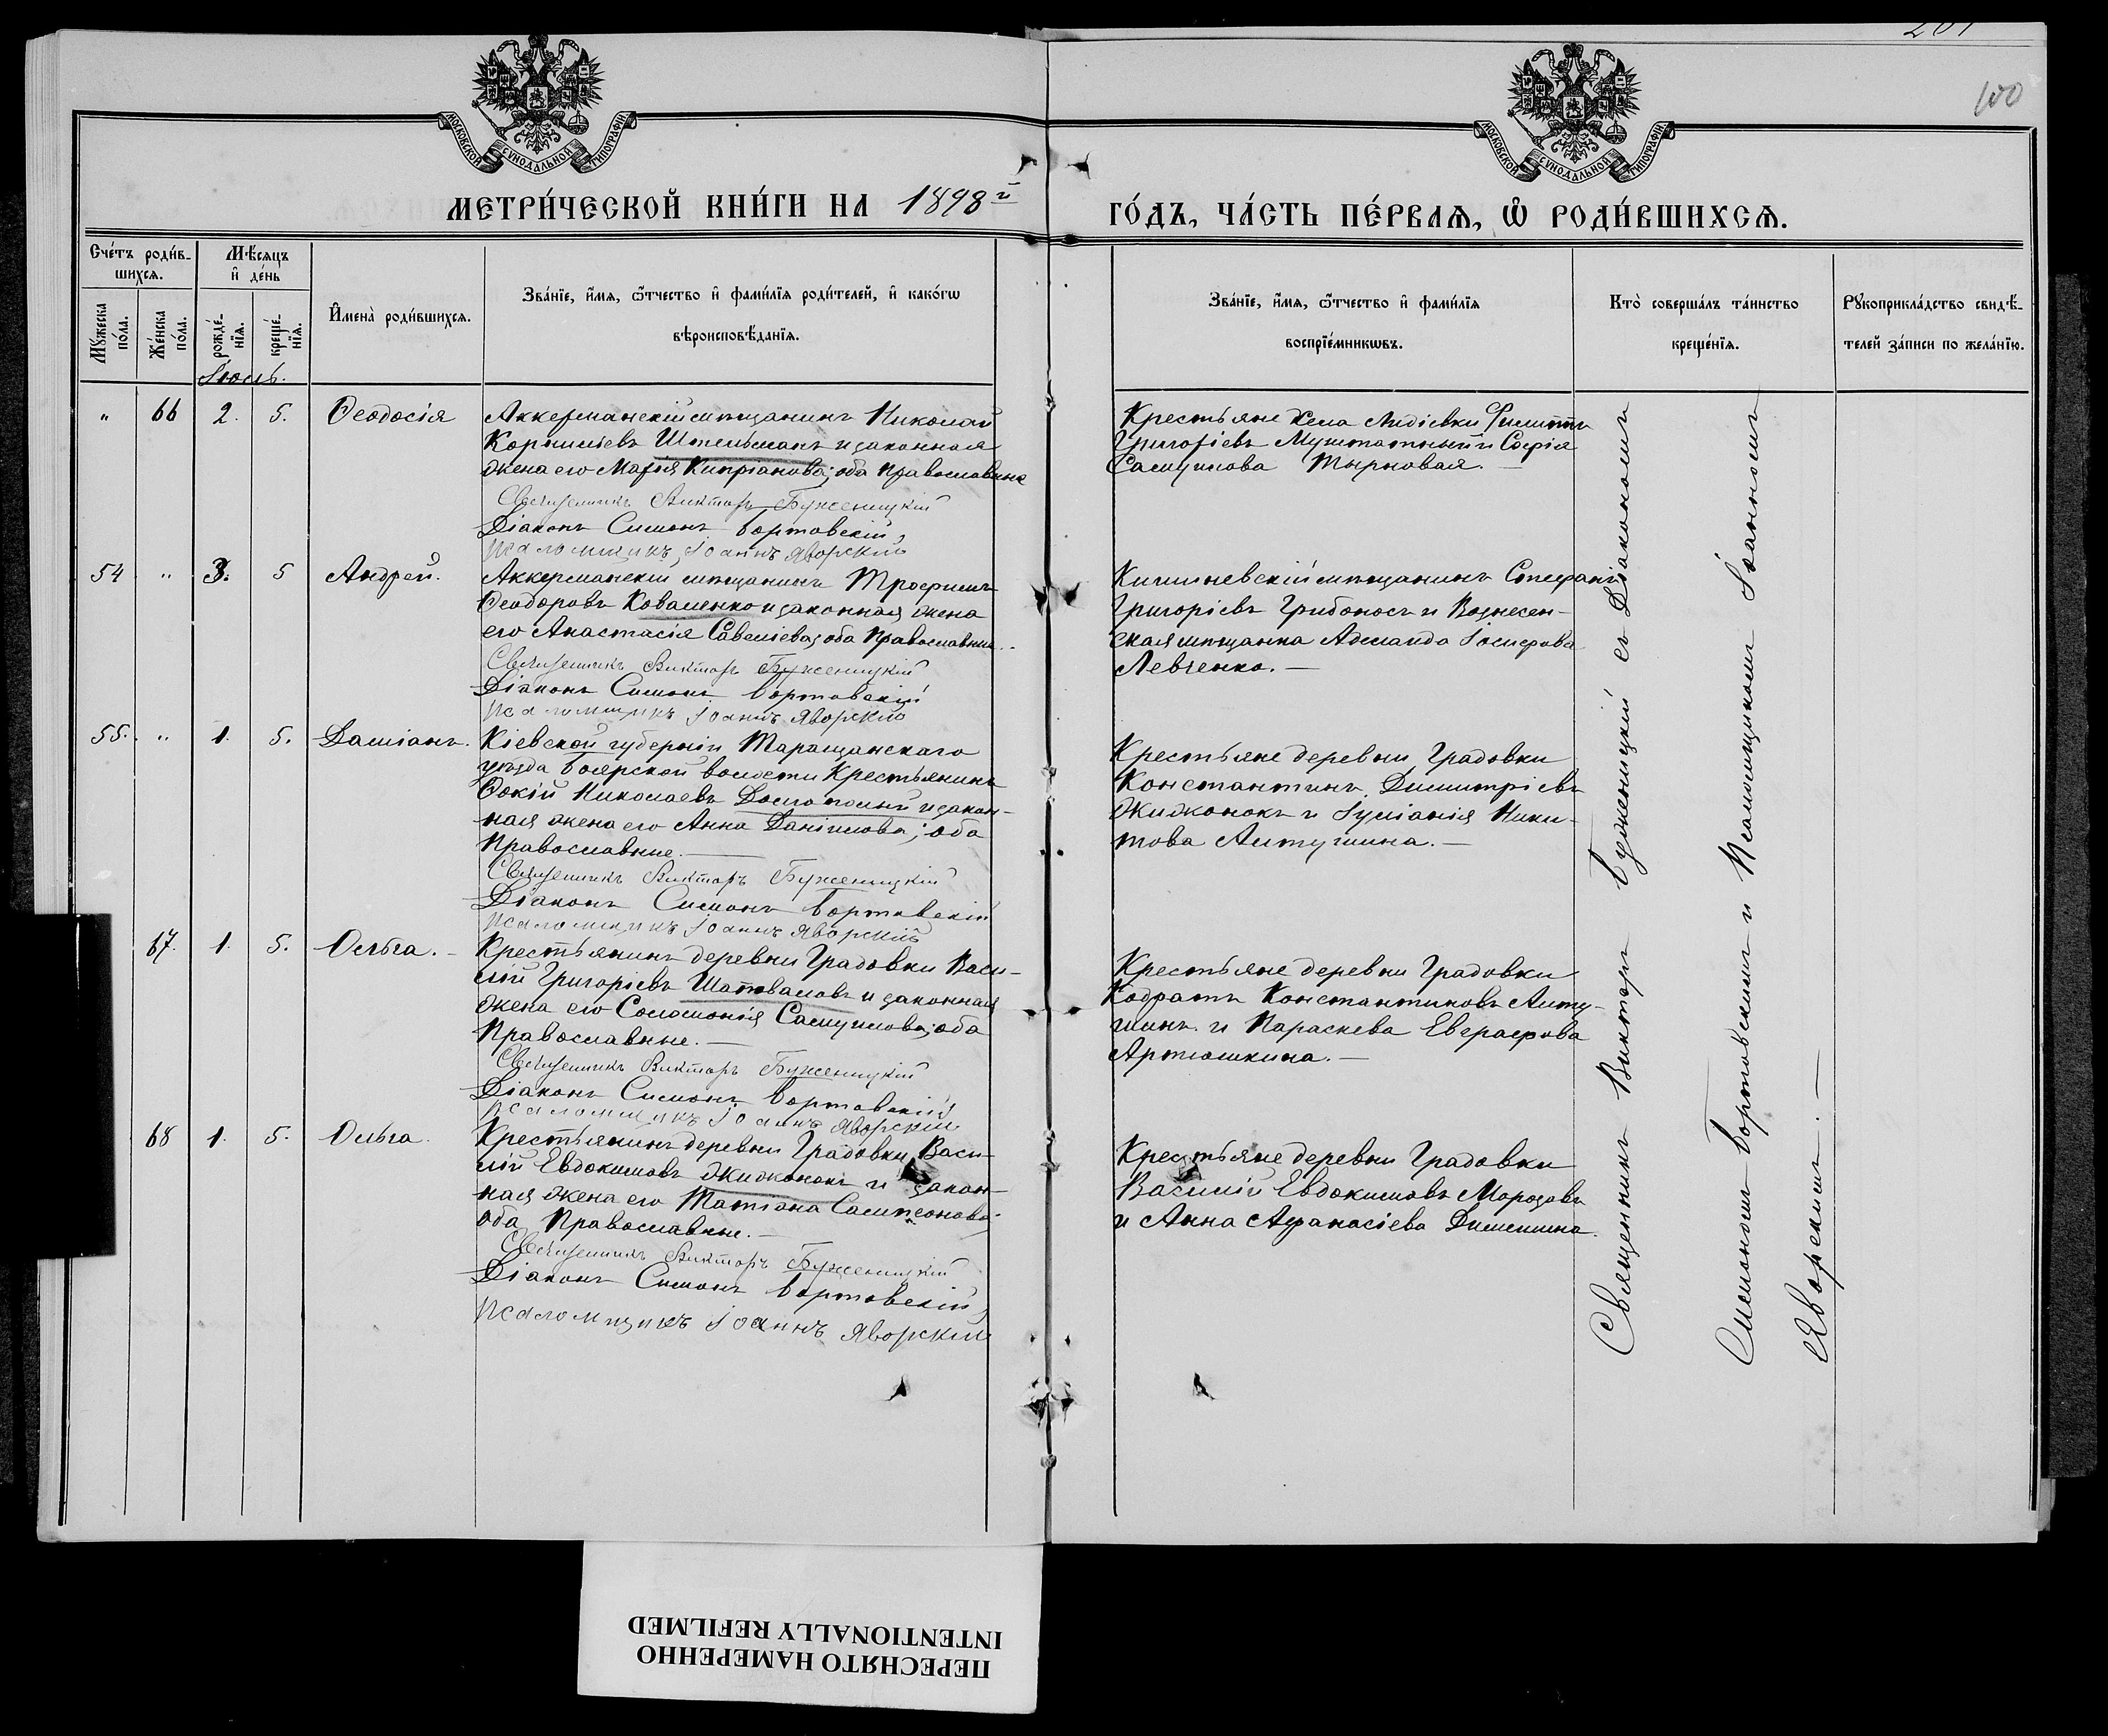 201
100
МОСКОВСКОЙ СѴНОДАЛЬНОЙ ТИПОГРАФІИ
МОСКОВСКОЙ СѴНОДАЛЬНОЙ ТИПОГРАФІИ
МЕТРИ́ЧЕСКОЙ КНИ́ГИ НА 1898й ГО́ДЪ, ЧА́СТЬ ПЕ́РВАѦ, Ѽ РОДИ́ВШИХСѦ.
Сче́тъ роди́в-
шихсѧ.
Мѣ́сяцъ
и҆ де́нь
Мꙋ́жеска
по́ла.
Же́нска
по́ла.
рожде́-
нїѧ.
креще́-
нїѧ.
И҆мена̀ роди́вшихсѧ.
Зва́нїе, и҆́мѧ, ѻ҆́тчество и҆ фами́лїѧ роди́телей, и҆ како́гѡ
вѣроисповѣ́данїѧ.
Зва́нїе, и҆́мѧ, ѻ҆́тчество и҆ фами́лїѧ
воспрїе́мникѡвъ.
Кто̀ соверша́лъ та́инство
креще́нїѧ.
Рꙋкоприкла́дство свидѣ́-
телей за́писи по жела́нїю.
Іюль.
" 66 2. 5. Ѳеодосія
Аккерманскій мѣщанинъ Николай
Корнильевъ Штельмахъ и законная
жена его Марія Кипріанова; оба Православные
Священникъ Викторъ Буженицкій
Діаконъ Симонъ Бортовскій,
Псаломщикъ Іоаннъ Яворскій
Крестьяне села Лидіевки Филиппъ
Григорієвъ Муштатный и Софія
Самуилова Тырновая.—
54 " 3. 5 Андрей.
Аккерманскій мѣщанинъ Трофимъ
Ѳеодоровъ Коваленко и законная жена
его Анастасія Савеліева; оба Православные.
Священникъ Викторъ Буженицкій
Діаконъ Симонъ Бортовскій
Псаломщикъ Іоаннъ Яворскій
Кишиневскій мѣщанинъ Стефанъ
Григоріевъ Грибоносъ и Вознесен-
ская мѣщанка Аделаида Іосифова
Левченко.—
55. " 1. 5. Даміанъ.
Кіевской губерніи, Таращанскаго
уѣзда Боярской волости Крестьянинъ
Фокій Николаевъ Долгополый и закон-
ная жена его Анна Даніилова; оба
Православные.—
Священникъ Викторъ Буженицкій
Діаконъ Симонъ Бортовскій
Псаломщикъ Іоаннъ Яворскій
Крестьяне деревни Градовки
Константинъ Димитріевъ
Жиджонокъ и Іуліанія Ники-
това Алтушина.—
67. 1. 5. Ольга.
Крестьянинъ деревни Градовки Васи-
лій Григоріевъ Шаповаловъ и законная
жена его Соломонія Самуилова; оба
Православные.—
Священникъ Викторъ Буженицкій
Діаконъ Симонъ Бортовскій,
Псаломщикъ Іоаннъ Яворскій
Крестьяне деревни Градовки
Кодратъ Константиновъ Алту-
шинъ и Параскева Евграфова
Артюшкина.—
68 1. 5. Ольга.
Крестьянинъ деревни Градовки Васи-
лій Евдокимовъ Жиджонокъ и закон-
ная жена его Татіана Сампсонова;
оба Православные.—
Священникъ Викторъ Буженицкій
Діаконъ Симонъ Бортовскій,
Псаломщикъ Іоаннъ Яворскій
Крестьяне деревни Градовки
Василій Евдокимовъ Морозовъ
и Анна Афанасіева
Священникъ Викторъ Буженицкій съ Діакономъ
Симономъ Бортовскимъ и Псаломщикомъ Іоанномъ
Яворскимъ.—
ПЕРЕСНЯТО НАМЕРЕННО
INTENTIONALLY REFILMED